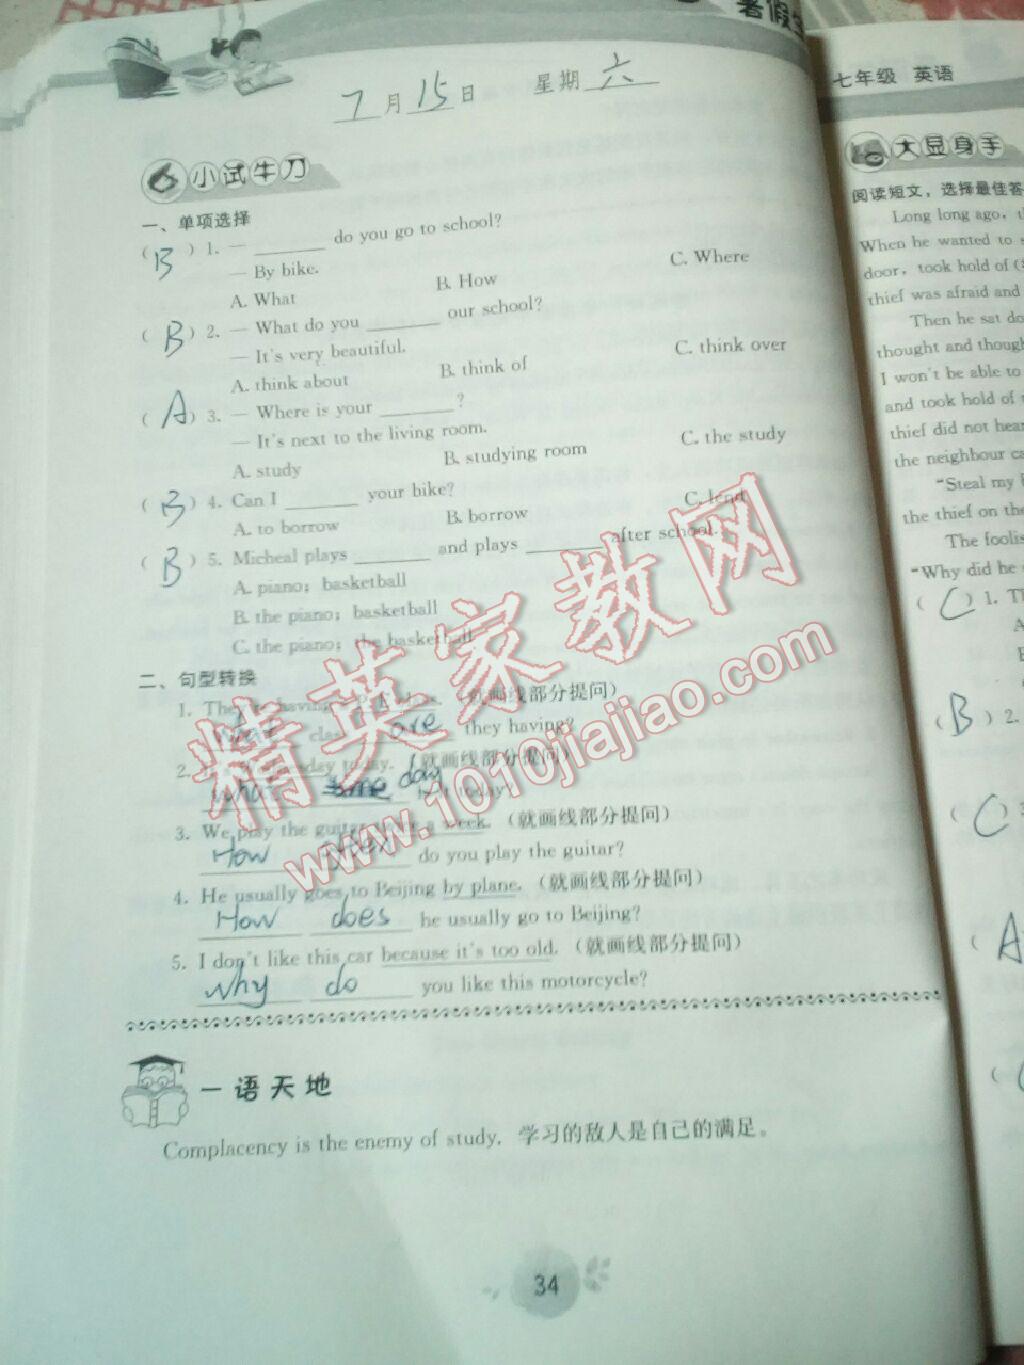 暑假
7月15日 星期六
6 小试牛刀
一、单项选择
( B ) 1. — ________ do you go to school?
— By bike.
A. What B. How C. Where
( B ) 2. — What do you ________ our school?
— It's very beautiful.
A. think about B. think of C. think over
( A ) 3. — Where is your ________ ?
— It's next to the living room.
A. study B. studying room C. the study
( B ) 4. Can I ________ your bike?
A. to borrow B. borrow C. lend
( B ) 5. Micheal plays ________ and plays ________ after school.
A. piano; basketball
B. the piano; basketball
C. the piano; the basketball
二、句型转换
1. They're having (就画线部分提问)
What are they having?
2. today. (就画线部分提问)
day today?
3. We play the guitar a week. (就画线部分提问)
How often do you play the guitar?
4. He usually goes to Beijing by plane. (就画线部分提问)
How does he usually go to Beijing?
5. I don't like this car because it's too old. (就画线部分提问)
why do you like this motorcycle?
一语天地
Complacency is the enemy of study. 学习的敌人是自己的满足。
34
七年级 英语
大显身手
阅读短文，选择最佳答
Long long ago,
When he wanted to
door, took hold of
thief was afraid and
Then he sat do
thought and though
I won't be able to
and took hold of
thief did not hear
the neighbour ca
"Steal my
the thief on the
The foolis
"Why did he
( C ) 1. T
A
( B ) 2.
( C )
( A
(
精英家教网
www.1010jiajiao.com